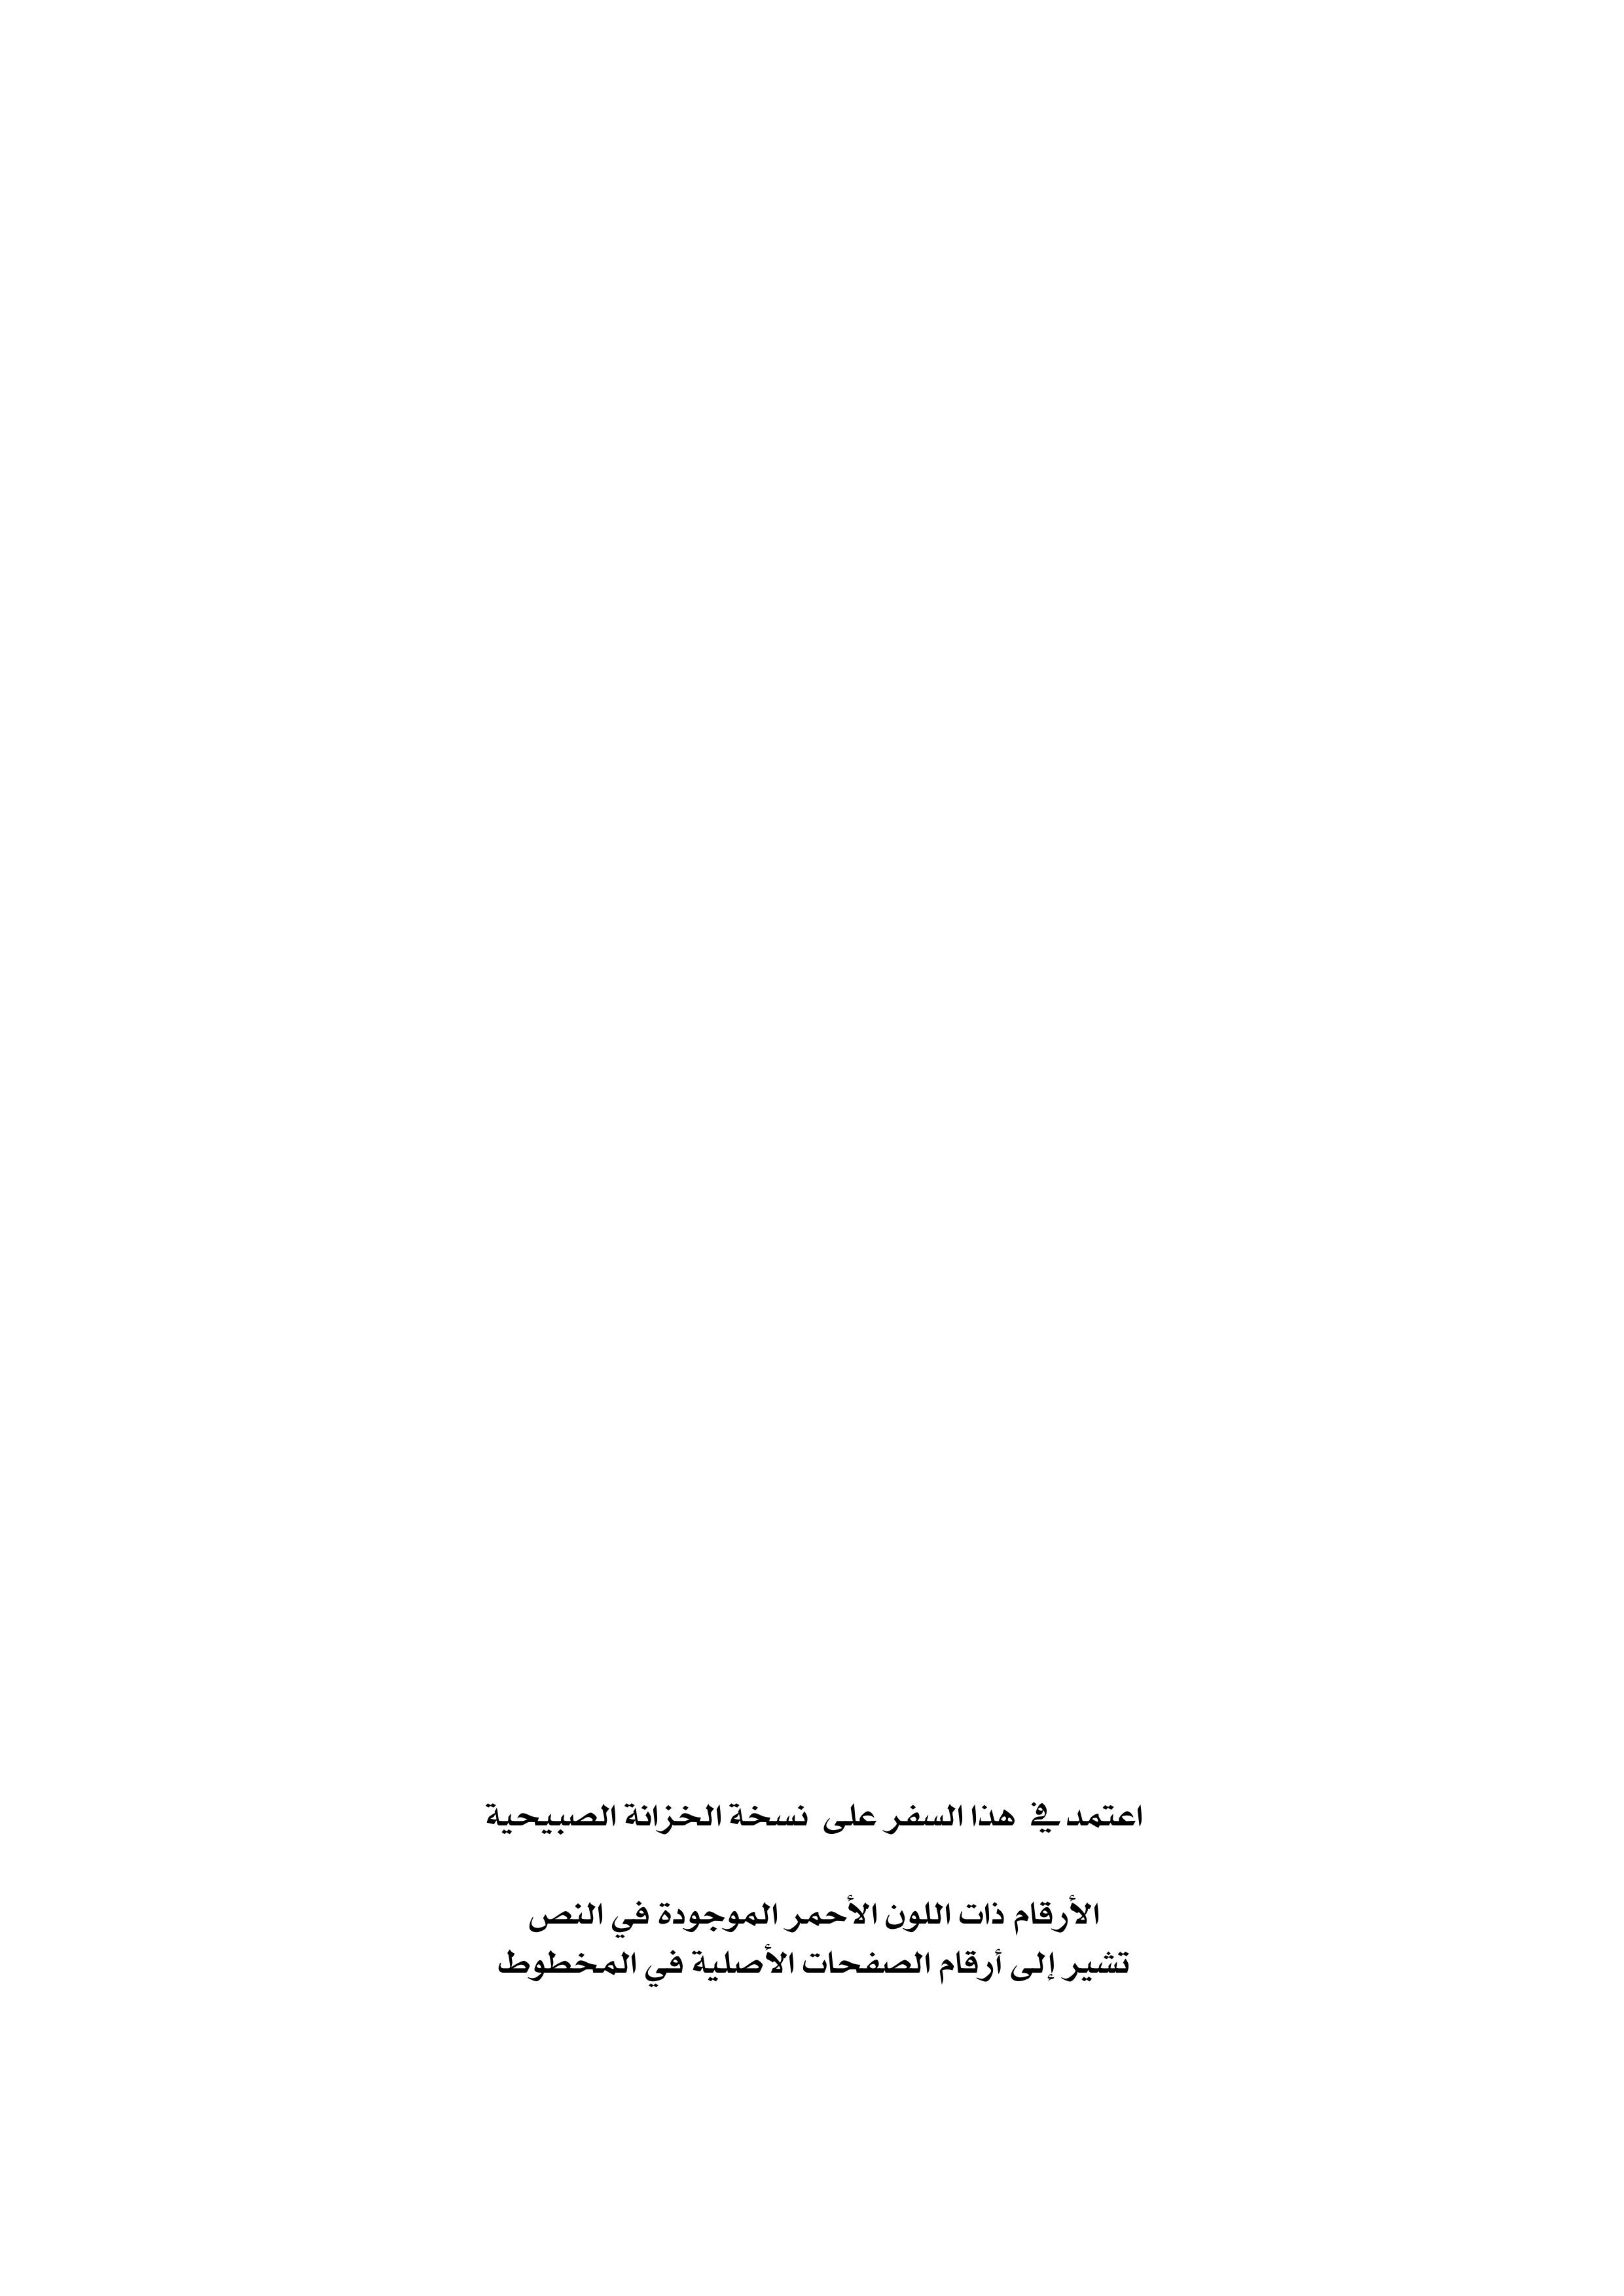 اعتمد في هذا السفر على نسخة الخزانة الصبيحية
الأرقام ذات اللون الأحمر الموجودة في النص
تشير إلى أرقام الصفحات الأصلية في المخطوط